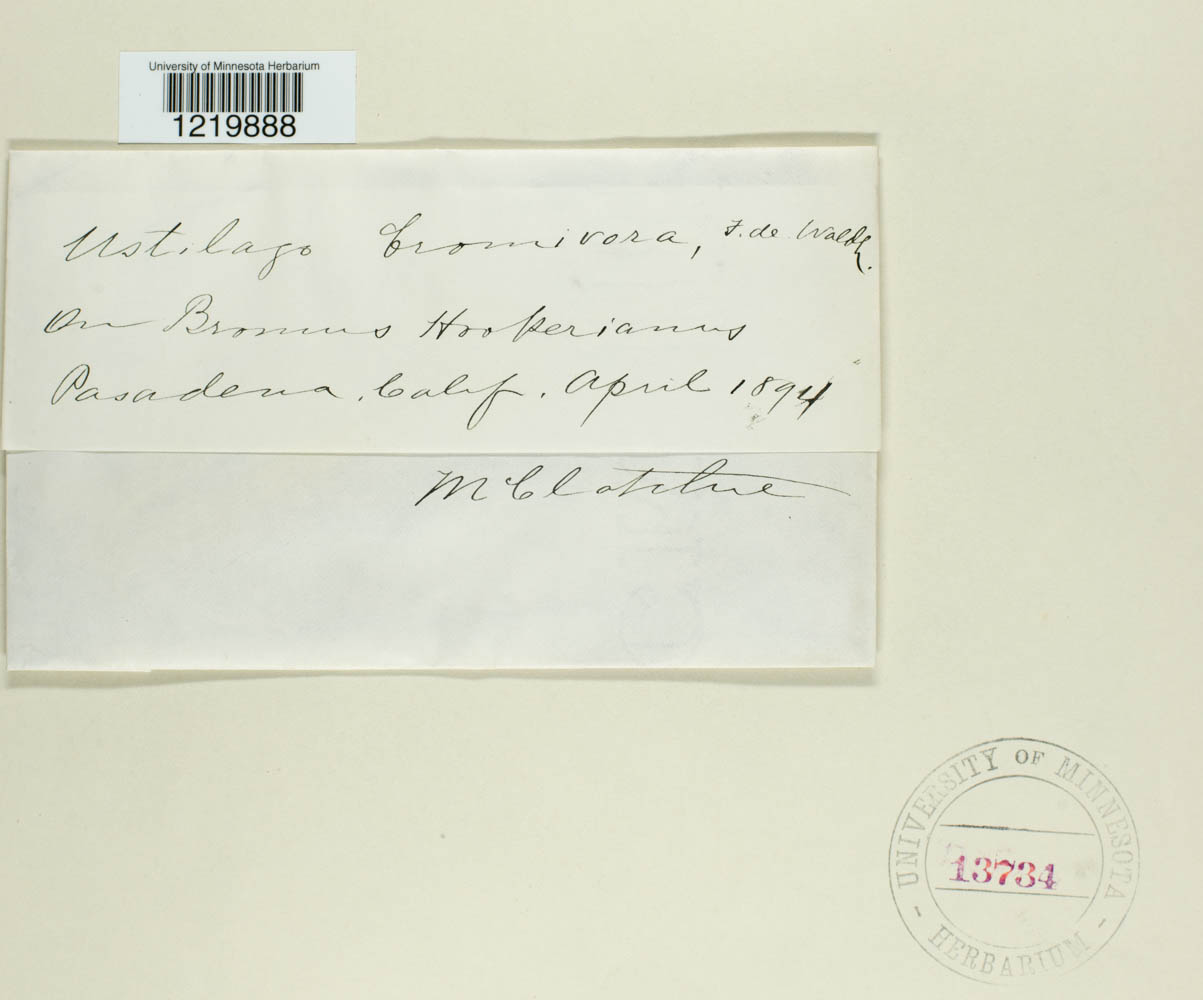 University of Minnesota Herbarium
1219888
Ustilago bromivora, F. de Waldh.
On Bromus Hookerianus
Pasadena, Calif. April 1894
McClatchie
UNIVERSITY OF MINNESOTA
13734
- HERBARIUM -